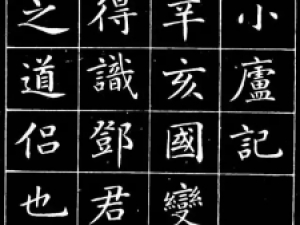 小廬記
辛亥國變
得識鄧君
之道侶也